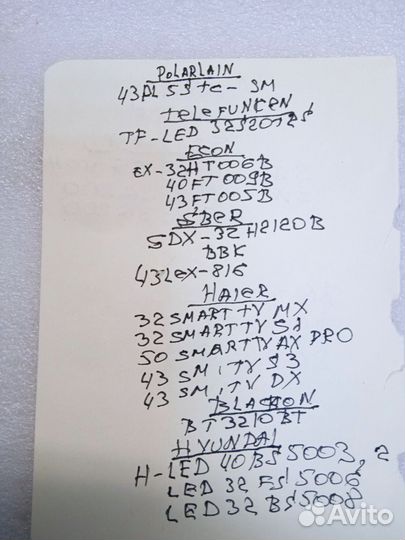 POLARLAIN
43PL53TC-SM
teleFUNCEN
TF-LED 32S2012S
ECON
EX-32HT006B
40FT009B
43FT005B
SBER
SDX-32H2120B
BBK
43Lex-816
HAIER
32 SMART TV MX
32 SMART TV S1
50 SMART TV AX PRO
43 SM, TV S3
43 SM, TV DX
BLACKON
BT3210BT
HYUNDAI
H-LED 40BS5003, 2
LED 32 FS5006
LED 32 BS5008
Avito